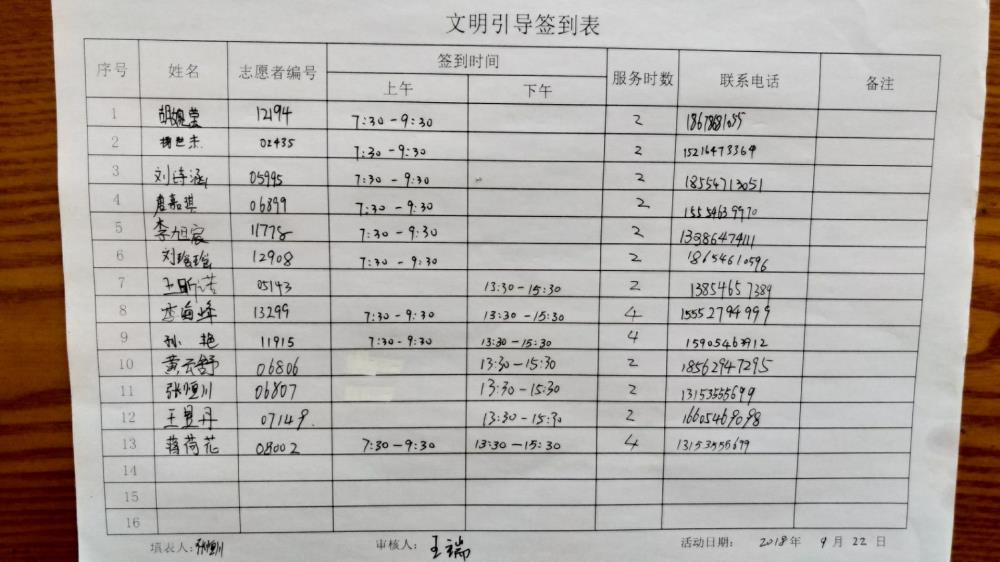 文明引导签到表
序号 姓名 志愿者编号 签到时间 服务时数 联系电话 备注
上午 下午
1 12194 7:30-9:30 2
2 02435 7:30-9:30 2 15216473369
3 刘诗涵 05995 7:30-9:30 2 18554713051
4 唐嘉琪 06899 7:30-9:30 2 15554639970
5 李旭宸 11778 7:30-9:30 2 13386474111
6 刘瑄瑄 12908 7:30-9:30 2 18654610596
7 王昕诺 05143 13:30-15:30 2 13854657389
8 李海峰 13299 7:30-9:30 13:30-15:30 4 15552794999
9 孙艳 11915 7:30-9:30 13:30-15:30 4 15905463912
10 黄云舒 06806 13:30-15:30 2 18562947295
11 张恒川 06807 13:30-15:30 2 13153555699
12 王昱丹 07149. 13:30-15:30 2 16605469098
13 蒋荷花 08002 7:30-9:30 13:30-15:30 4 13153555699
14
15
16
填表人:张恒川 审核人: 王瑞 活动日期: 2018年 9月22日